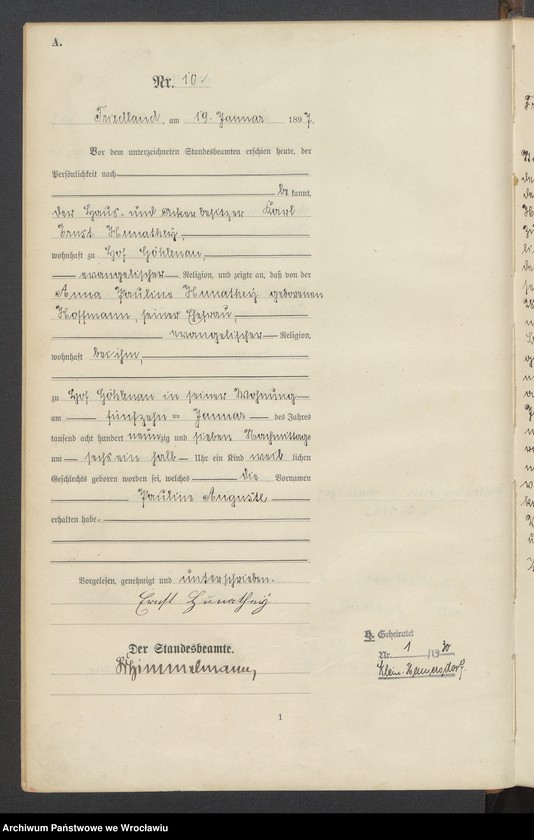 A.
Nr. 10
Friedland, am 19. Januar 1897.
Vor dem unterzeichneten Standesbeamten erschien heute, der
Persönlichkeit nach
be kannt,
der Haus- und Ackerbesitzer Karl
Ernst
wohnhaft zu Hof Göhlenau,
evangelischer Religion, und zeigte an, daß von der
Anna Pauline geborenen
Hoffmann, seiner Ehefrau,
evangelischer Religion,
wohnhaft bei ihm,
zu Hof Göhlenau in seiner Wohnung
am fünfzehn ten Januar des Jahres
tausend acht hundert neunzig und sieben Nachmittags
um sechs ein halb Uhr ein Kind weib lichen
Geschlechts geboren worden sei, welches die Vornamen
Pauline Auguste
erhalten habe.
Vorgelesen, genehmigt und unterschrieben.
Ernst
Der Standesbeamte.
Himmelmann,
H. Geheiratet
Nr. 1 /1930
Klein-
1
Archiwum Państwowe we Wrocławiu